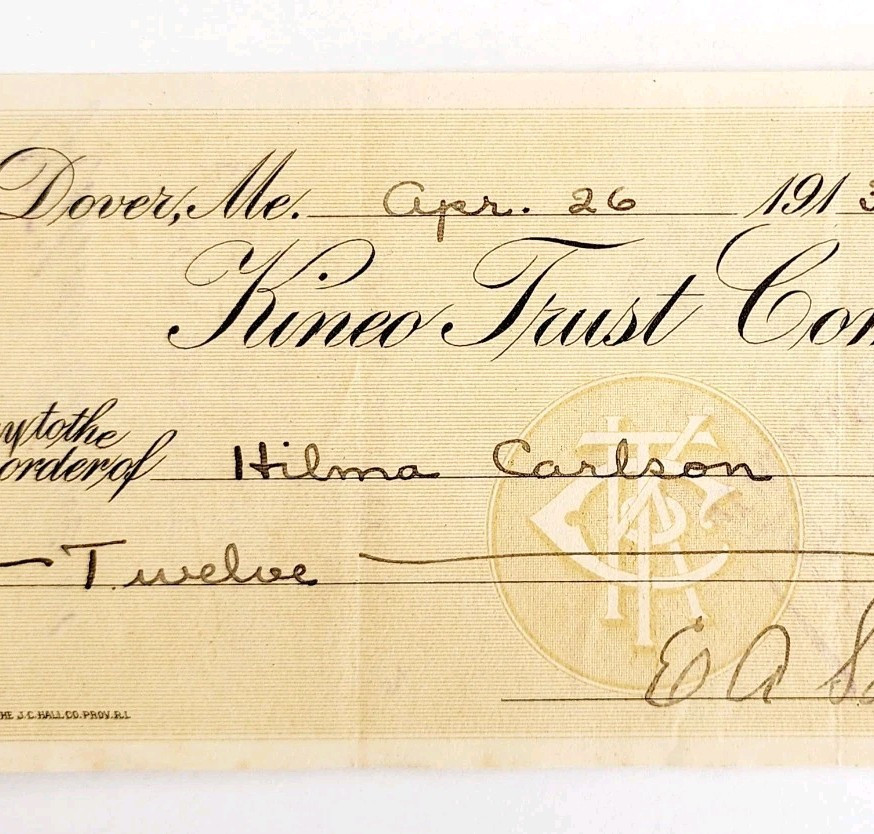 Dover, Me. Apr. 26 1913
Kineo Trust Com
y to the
order of Hilma Carlson
Twelve
E A S
THE J.C. HALL CO. PROV. R.I.